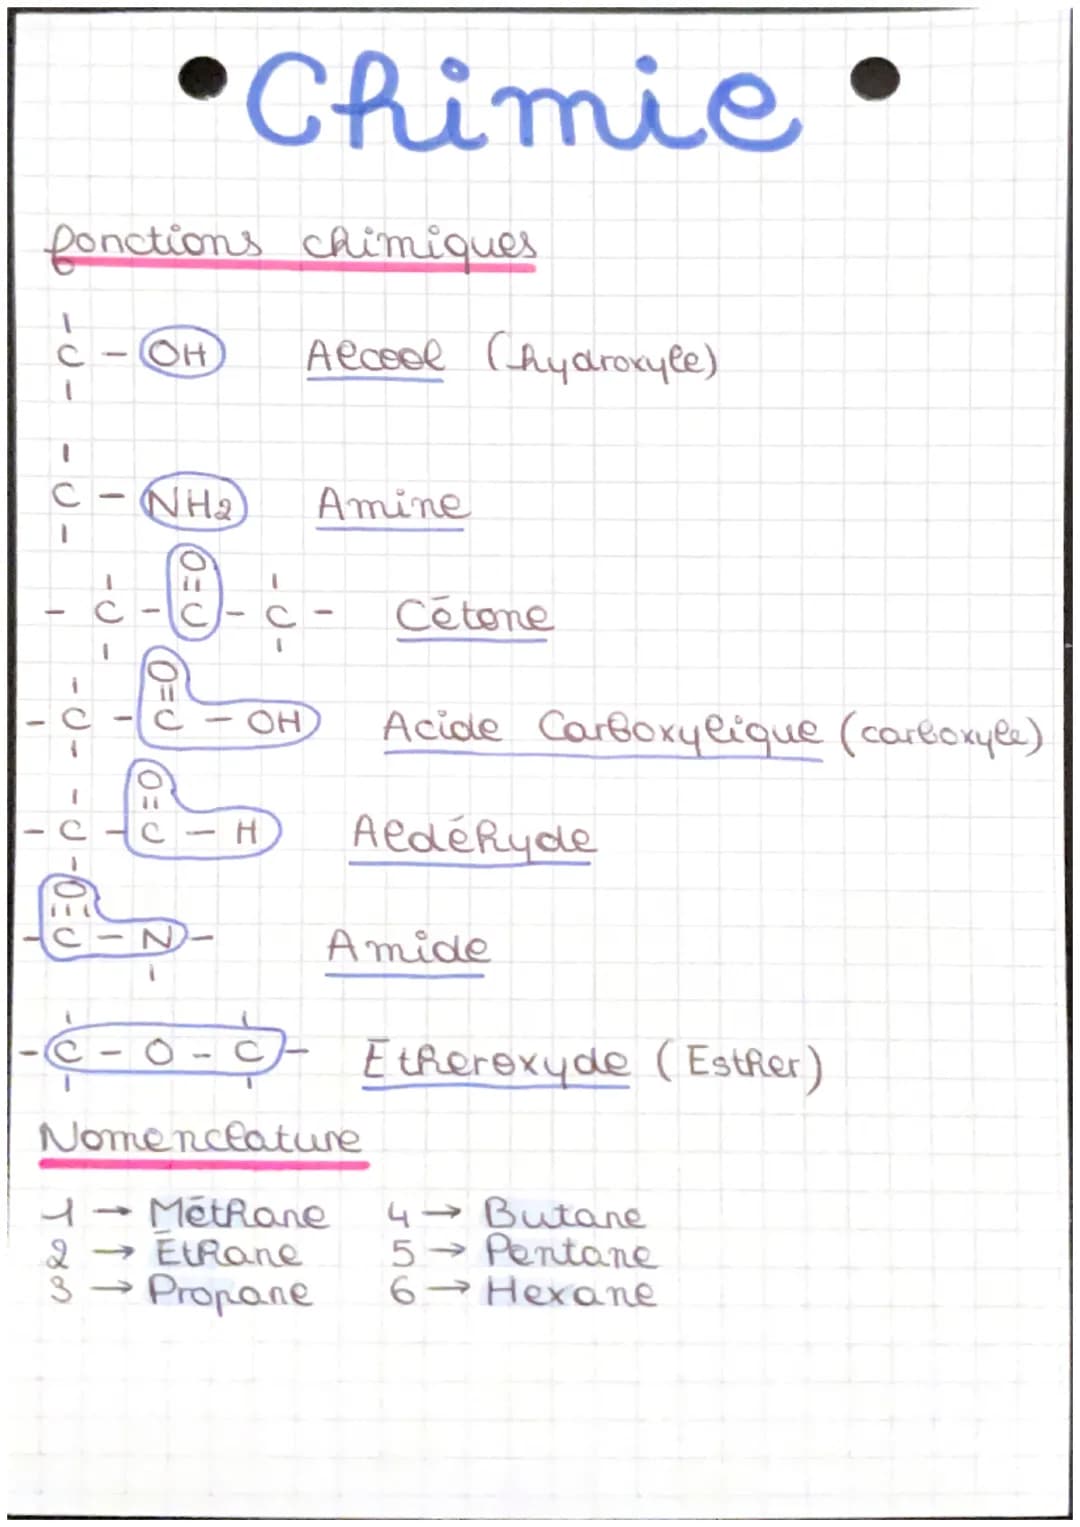 Chimie
fonctions chimiques
C - OH Alcool (hydroxyle)
C - NH2 Amine
O
- C - C - C - Cétone
O
- C - C - OH Acide Carboxylique (carboxyle)
O
- C - C - H Aldéhyde
O
- C - N - Amide
- C - O - C - Etheroxyde (Esther)
Nomenclature
1 → Méthane 4 → Butane
2 → Éthane 5 → Pentane
3 → Propane 6 → Hexane